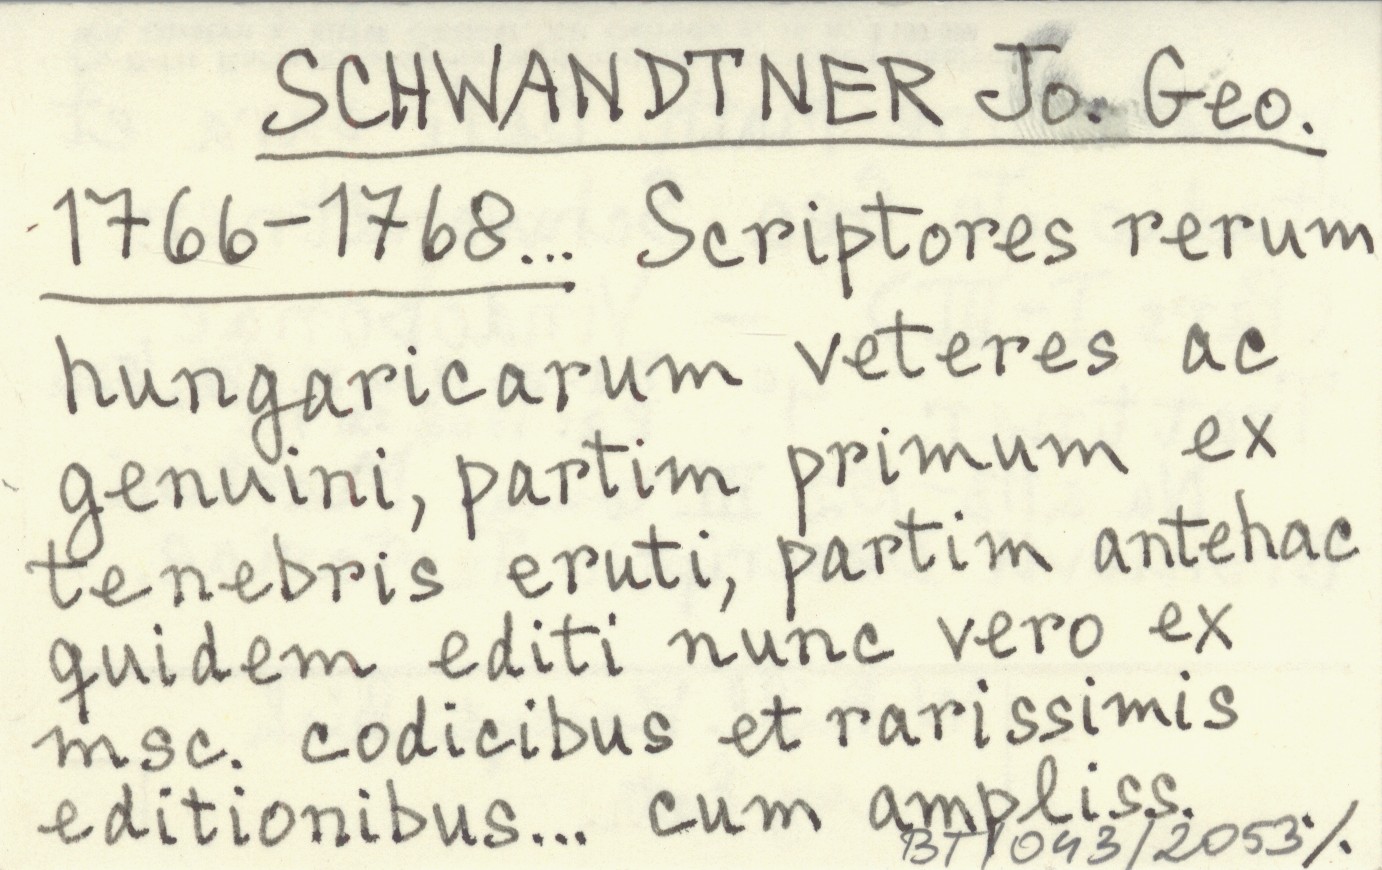 SCHWANDTNER Jo. Geo.
1766-1768... Scriptores rerum
hungaricarum veteres ac
genuini, partim primum ex
tenebris eruti, partim antehac
quidem editi nunc vero ex
msc. codicibus et rarissimis
editionibus... cum ampliss.
BT/093/2053/.